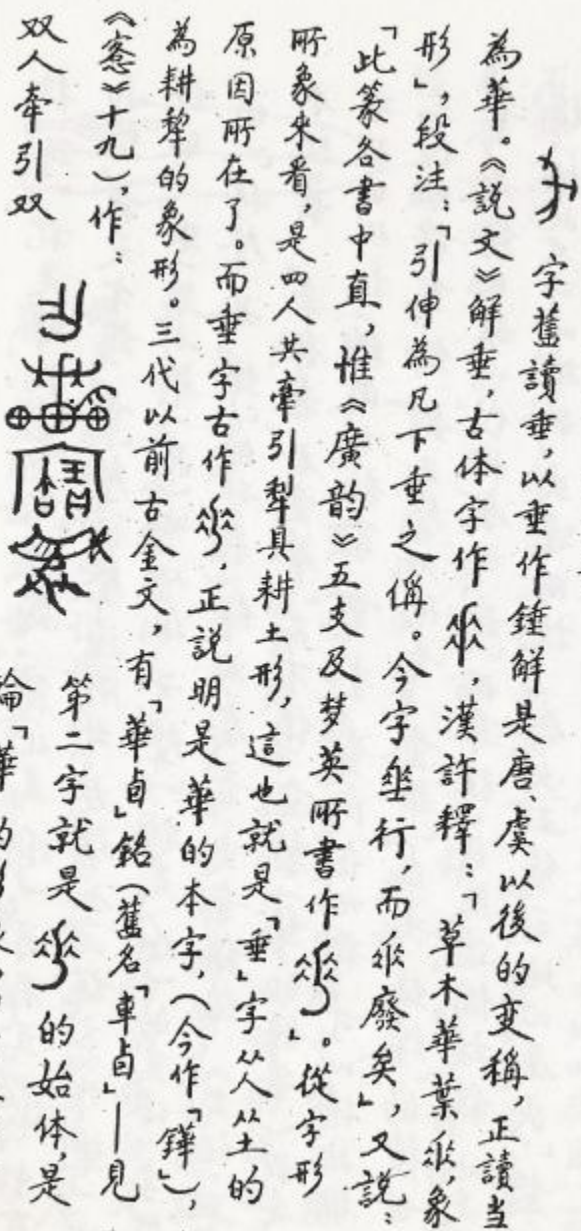 字舊讀垂,以垂作錘解是唐、虞以後的变稱,正讀当
為華。《說文》解垂,古体字作,漢許釋:「草木華葉𠂹,象
形」,段注:「引伸為凡下垂之偁。今字垂行,而𠂹廢矣」,又説:
「此篆各書中直,惟《廣韵》五支及梦英所書作」。從字形
所象來看,是四人共牽引犁具耕土形,這也就是「垂」字从人从土的
原因所在了。而垂字古作,正説明是華的本字,(今作「鏵」),
為耕犂的象形。三代以前古金文,有「華卣」銘(舊名「車卣」—見
《愙》十九),作:
第二字就是的始体,是
双人牽引双